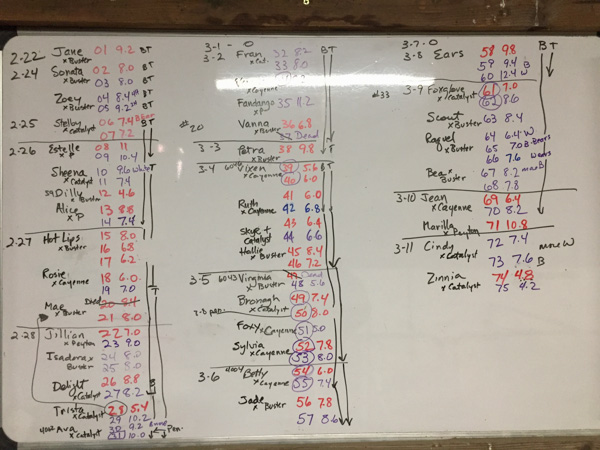 2-22 Jane 01 9.2 BT
x Buster
2-24 Sonata 02 8.0 BT
x Buster 03 8.0 BT
Zoey 04 8.4 BT
x Buster 05 9.2 BT
2-25 Shelby 06 7.4
x Catalyst 07 7.2
2-26 Estelle 08 11
x P 09 10.4
Sheena 10 9.6 T
x Catalyst 11 7.4
Dilly 12 4.6
x Buster
Alice 13 8.8
x P 14 7.4
2-27 Hot Lips 15 8.0
x Buster 16 6.8
17 6.2
Rosie 18 6.0
x Cayenne 19 7.0
Mae Dead 20 8.4
x Buster 21 8.0
2-28 Jillian 22 7.0
x Peyton 23 9.0
Isadora 24 8.0
x Buster 25 8.0
Delight 26 8.8
x Catalyst 27 8.2
Trista 28 5.4
x Catalyst 29 10.2
Ava 30 9.2
x Catalyst 31 10.0 Pen.
3-1 - 0
3-2 Fran 32 8.2 BT
33 8.0
x Cayenne
Fandango 35 11.2
x P
#20 Vanna 36 6.8
x Buster 37 Dead
3-3 Petra 38 9.8 T
3-4 Vixen 39 5.6 BT
x Cayenne 40 6.0
41 6.0
Ruth 42 6.8
x Cayenne
Skye 43 6.4
x Catalyst 44 6.6
Hallie 45 8.4
x Buster 46 7.2
3-5 6043 Virginia 47 Dead
x Buster 48 5.6
Bronagh 49 7.4
x Catalyst 50 8.0
Foxy x Cayenne 51 5.0
Sylvia 52 7.8
x Cayenne 53 8.0
3-6 Betty 54 6.0
x Cayenne 55 7.4
Jade 56 7.8
x Buster
57 8.6
3-7 0
3-8 Ears 58 9.8 BT
59 9.4 B
60 12.4 W
3-9 Foxglove 61 7.0
#33 x Catalyst 62 8.6
Scout 63 8.4
x Buster
Raquel 64 6.4 W
x Buster 65 7.0 B-Ears
66 7.6 W ears
Bea 67 8.2
x Buster 68 7.8
3-10 Jean 69 6.4
x Cayenne 70 8.2
Marilla 71 10.8
x Peyton
3-11 Cindy 72 7.4 more W
x Catalyst 73 7.6 B
Zinnia 74 4.8
x Catalyst 75 4.2